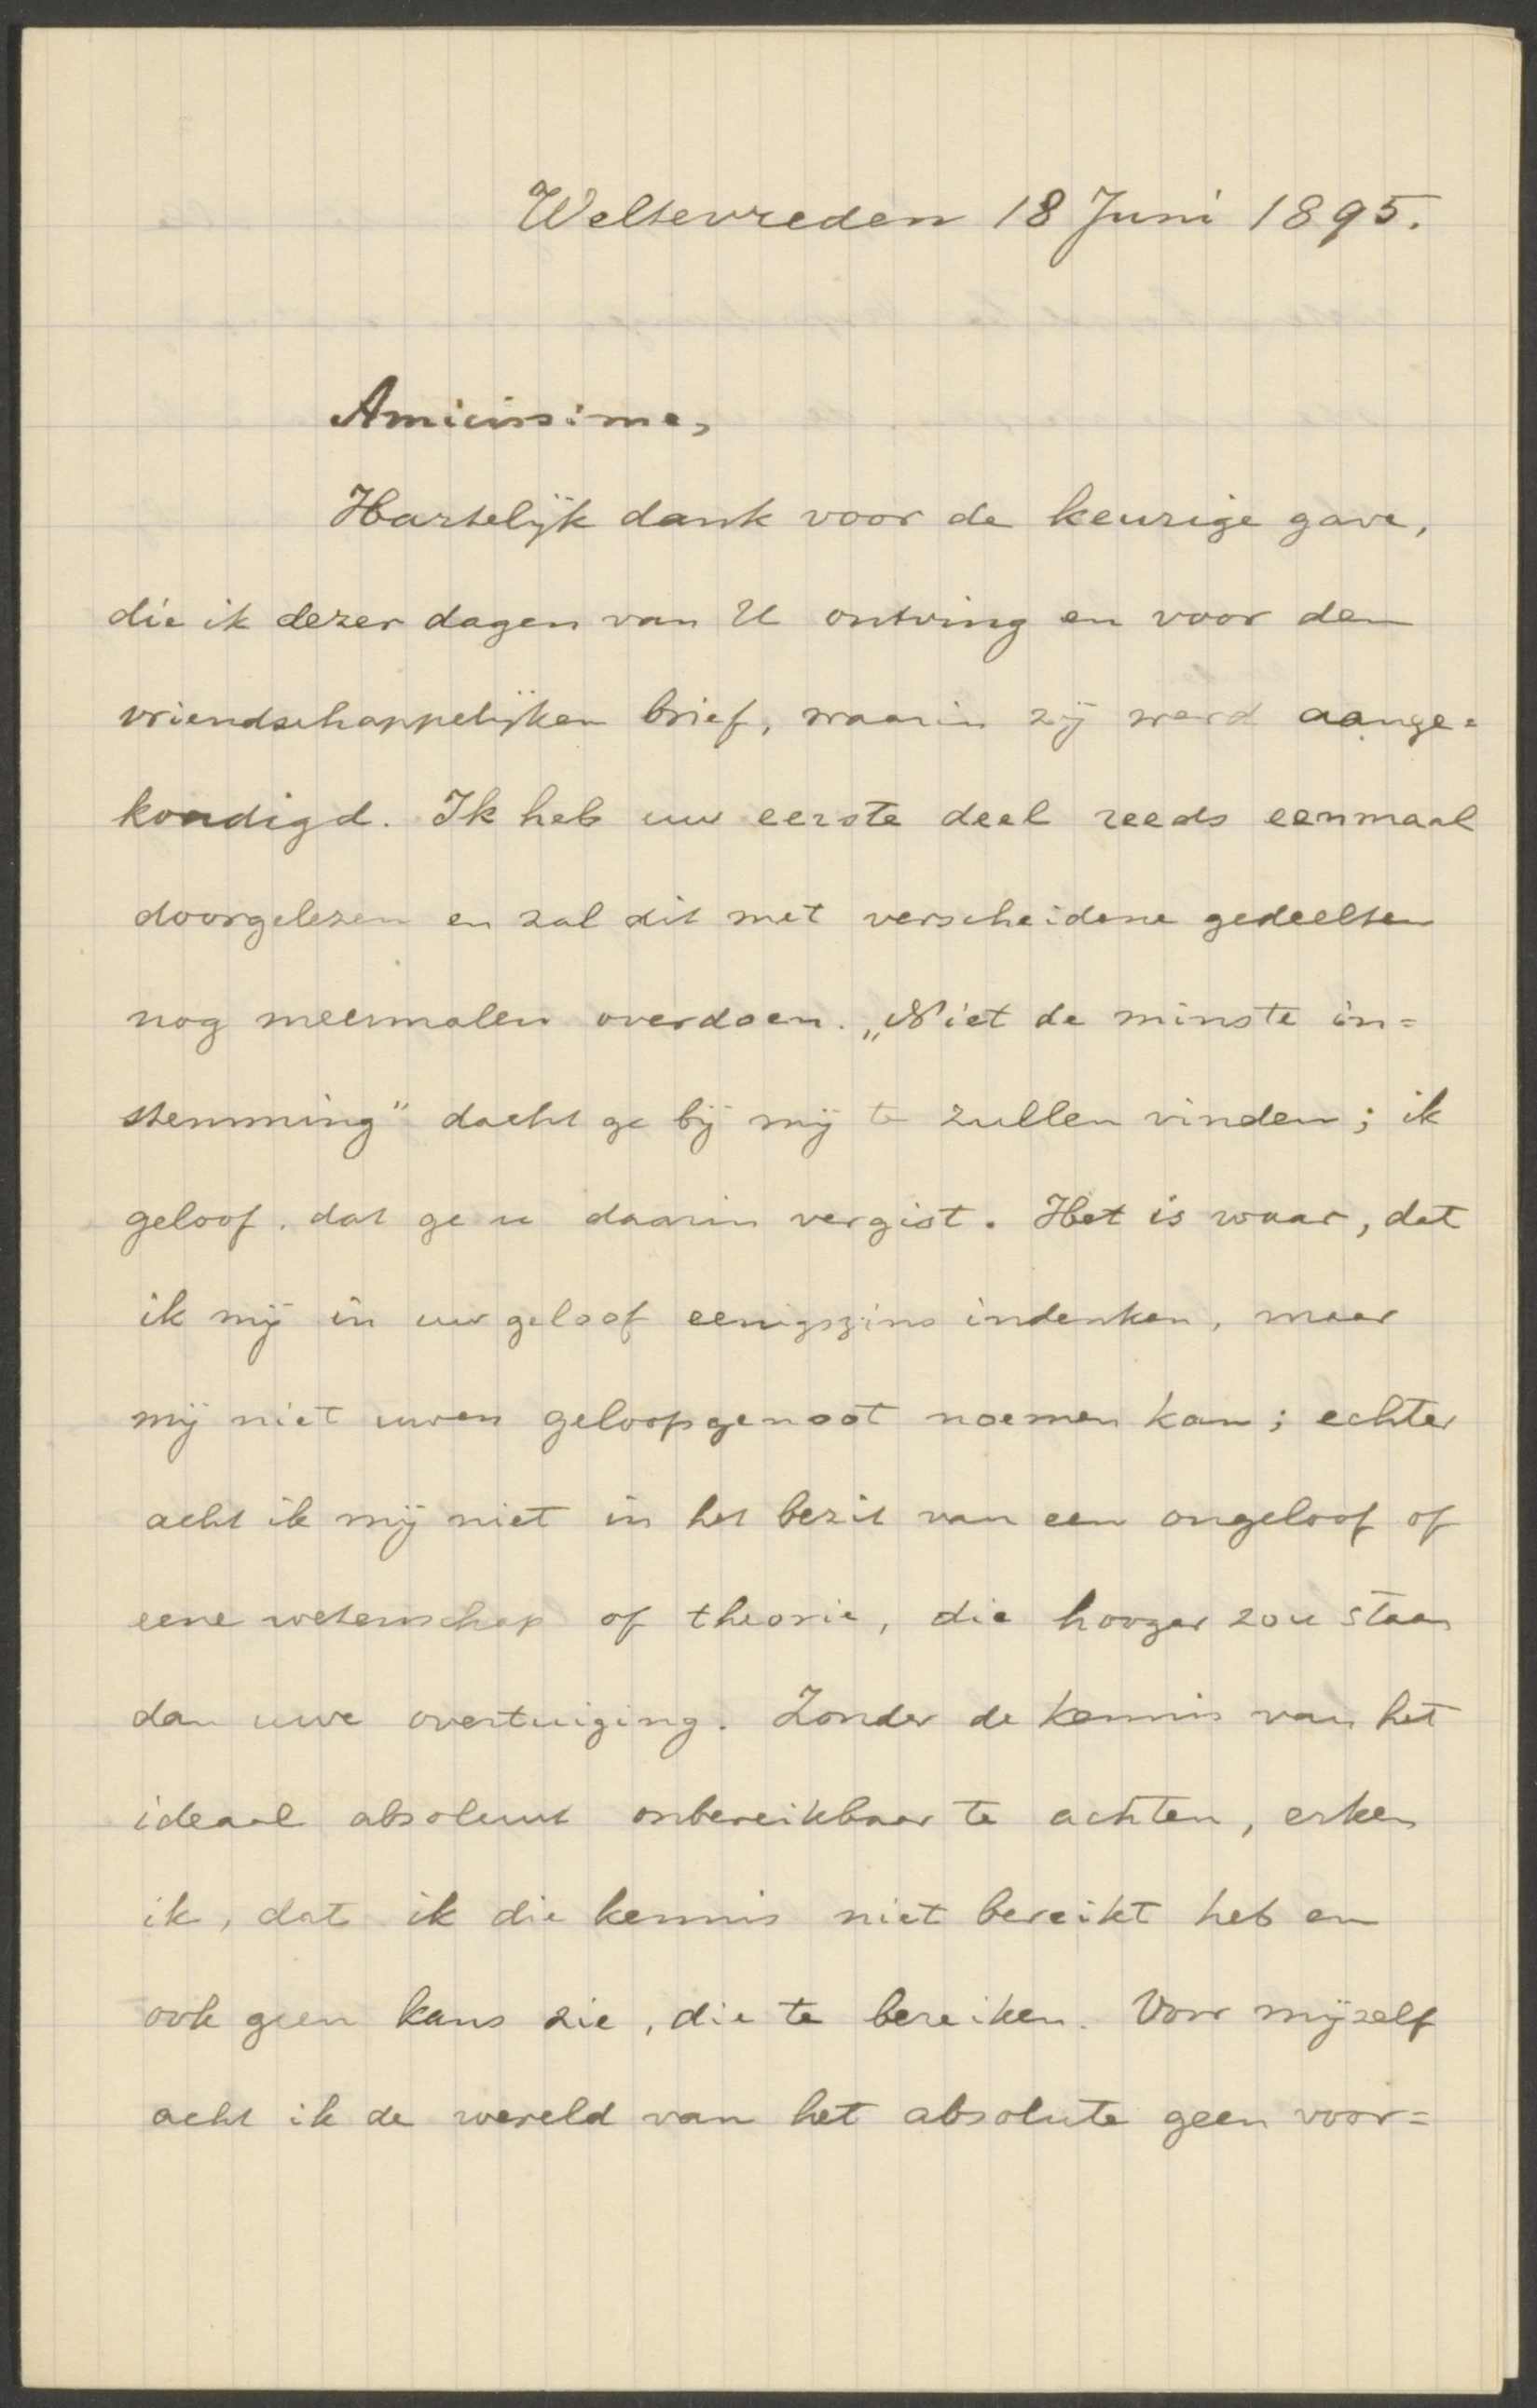 Weltevreden 18 Juni 1895.
Amicissime,
Hartelijk dank voor de keurige gave,
die ik dezer dagen van U ontving en voor den
vriendschappelijken brief, waarin zij werd aange=
kondigd. Ik heb uw eerste deel reeds eenmaal
doorgelezen en zal dit met verscheidene gedeelten
nog meermalen overdoen. „Niet de minste in=
stemming" dacht ge bij mij te zullen vinden; ik
geloof, dat ge u daarin vergist. Het is waar, dat
ik mij in uw geloof eenigszins indenken, maar
mij niet uwen geloofsgenoot noemen kan; echter
acht ik mij niet in het bezit van een ongeloof of
eene wetenschap of theorie, die hooger zou staan
dan uwe overtuiging. Zonder de kennis van het
ideaal absoluut onbereikbaar te achten, erken
ik, dat ik die kennis niet bereikt heb en
ook geen kans zie, die te bereiken. Voor mijzelf
acht ik de wereld van het absolute geen voor=